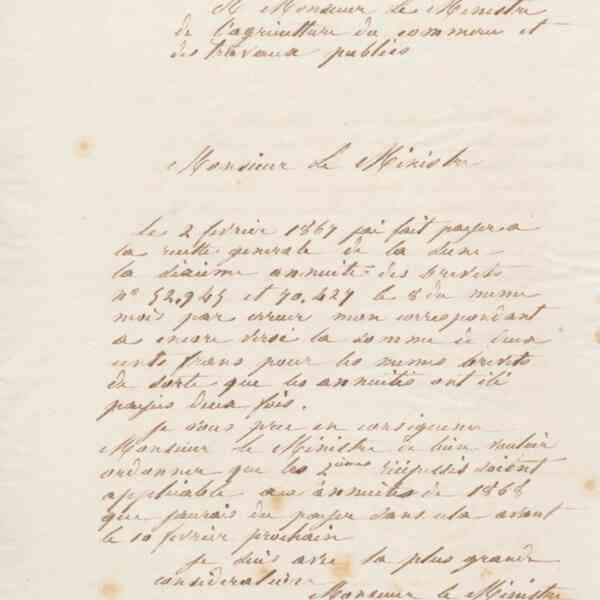 A Monsieur Le Ministre
de l'agriculture du commerce et
des travaux publics
Monsieur Le Ministre
le 2 fevrier 1867 j'ai fait payer a
la recette generale de la Seine
la dixieme annuité des brevets
n° 52,945 et 70,427 le 8 du meme
mois par erreur mon correspondant
a encore versé la somme de deux
cents francs pour les memes brevets
de sorte que les annuités ont été
payés deux fois.
Je vous prie en consequence
Monsieur le Ministre de bien vouloir
ordonner que les 2iemes récépissés soient
applicable aux annuités de 1868
que j'aurais du payer sans cela avant
le 10 fevrier prochain
Je suis avec la plus grande
consideration
Monsieur le Ministre